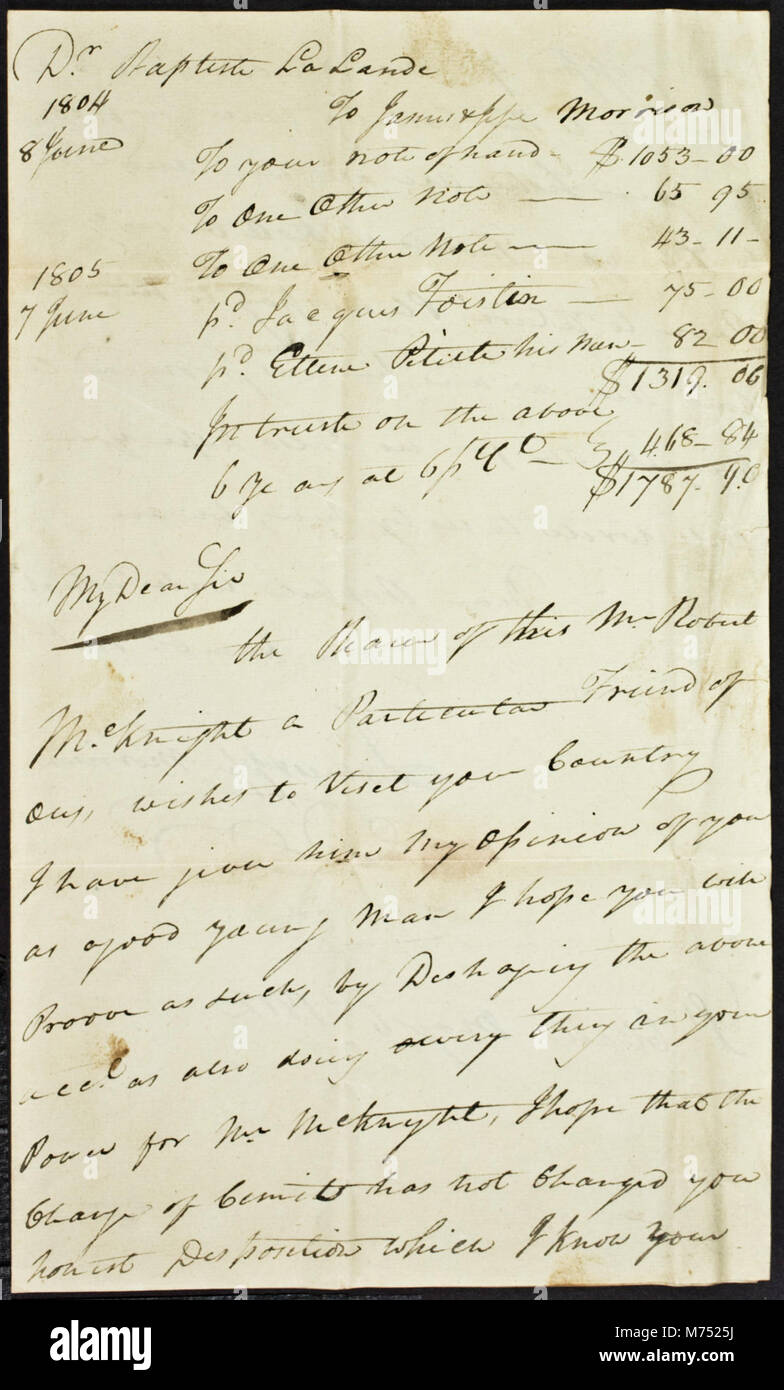 Dr Baptiste La Lande
1804 To James & Jesse Morrison
8 June To your note of hand - $1053-00
To One Other Note — 65 95
To One Other Note — 43-11-
1805
7 June pd. Jacques — 75-00
pd. his Man - 82 00
$1319. 06
Intruste on the above
6 Years at 6 p Ct - } 468-84
$1787. 90
My Dear Sir
the of this Mr Robert
McKnight a Particular Friend of
ours, wishes to Viset your Country
I have given him My Opinion of you
as a good young Man I hope you will
Proove as such, by the above
acct. as also doing every thing in your
Power for Mr McKnight, I hope that the
Change of has not Changed you
honest Desposition which I know your
alamy
alamy
a
www.alamy.com
M7525J